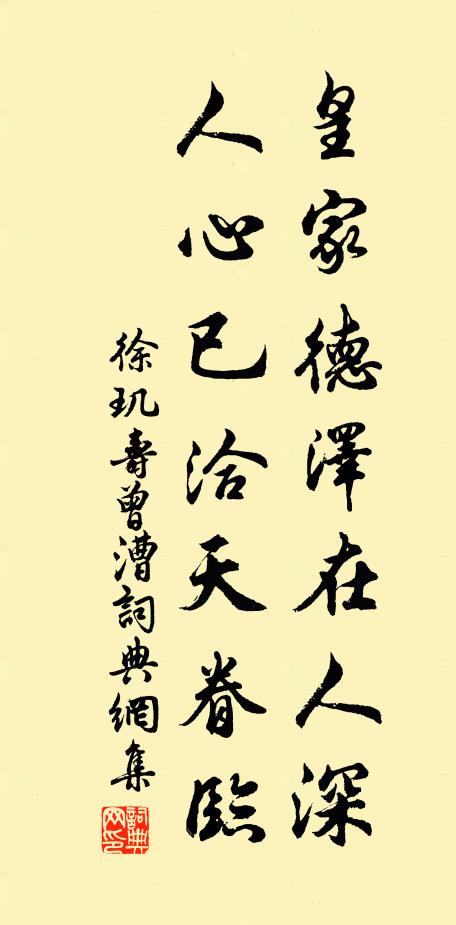 皇家德澤在人深
人心已洽天眷臨
徐玑壽曾漕詞典網集
詞典網印